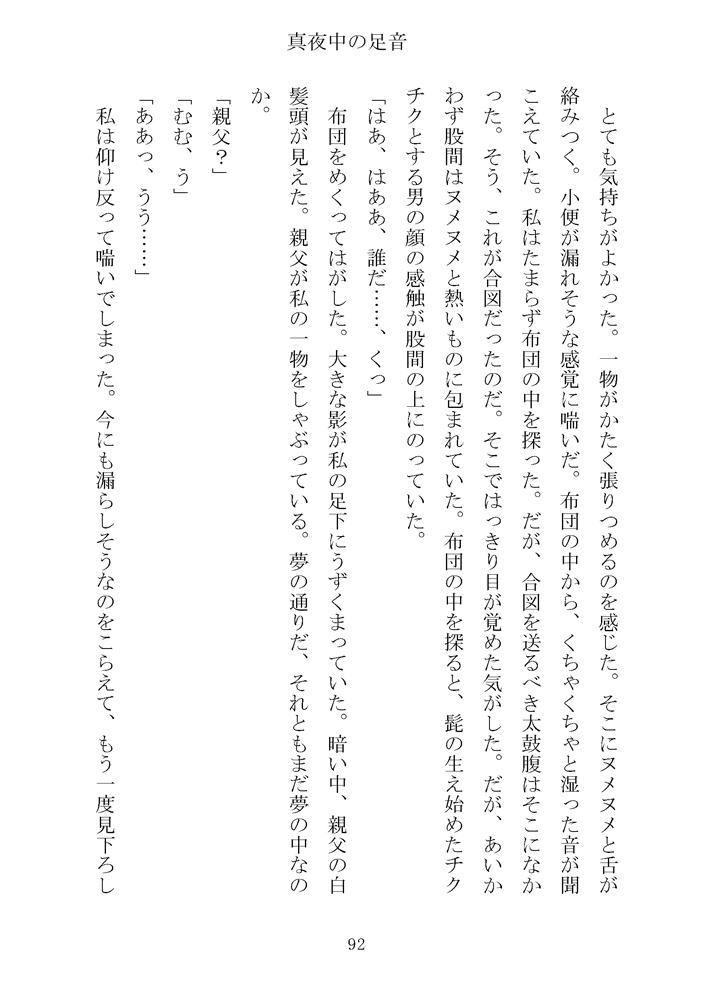 真夜中の足音
とても気持ちがよかった。一物がかたく張りつめるのを感じた。そこにヌメヌメと舌が
絡みつく。小便が漏れそうな感覚に喘いだ。布団の中から、くちゃくちゃと湿った音が聞
こえていた。私はたまらず布団の中を探った。だが、合図を送るべき太鼓腹はそこになか
った。そう、これが合図だったのだ。そこではっきり目が覚めた気がした。だが、あいか
わず股間はヌメヌメと熱いものに包まれていた。布団の中を探ると、髭の生え始めたチク
チクとする男の顔の感触が股間の上にのっていた。
「はあ、はああ、誰だ……、くっ」
布団をめくってはがした。大きな影が私の足下にうずくまっていた。暗い中、親父の白
髪頭が見えた。親父が私の一物をしゃぶっている。夢の通りだ、それともまだ夢の中なの
か。
「親父？」
「むむ、う」
「ああっ、うう……」
私は仰け反って喘いでしまった。今にも漏らしそうなのをこらえて、もう一度見下ろし
92